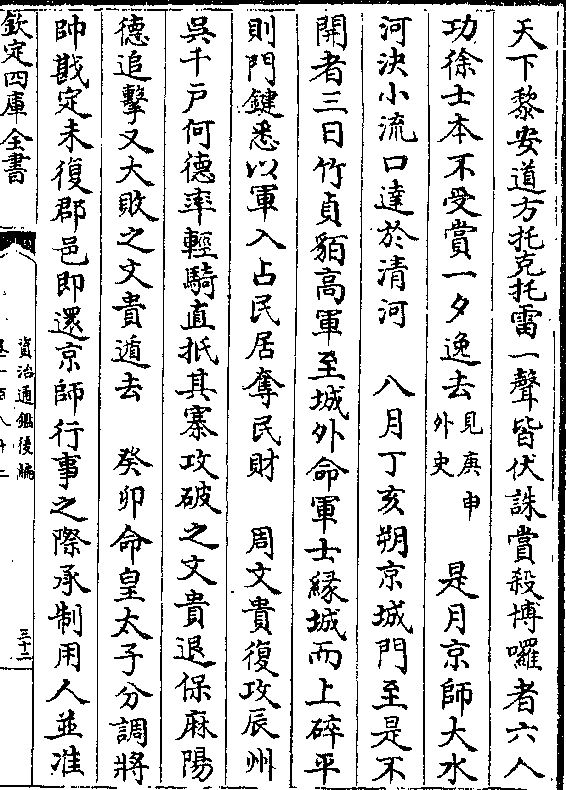 天下黎安道方托克托雷一聲皆伏誅賞殺博囉者六人
功徐士本不受賞一夕逸去見庚申外史 是月京師大水
河決小流口達於清河 八月丁亥朔京城門至是不
開者三日竹貞貊高軍至城外命軍士緣城而上碎平
則門鍵悉以軍入占民居奪民財 周文貴復攻辰州
吳千戸何德率輕騎直抵其寨攻破之文貴退保麻陽
德追擊又大敗之文貴遁去 癸卯命皇太子分調將
帥戡定未復郡邑即還京師行事之際承制用人並准
欽定四庫全書
資治通鑑後編
三十二